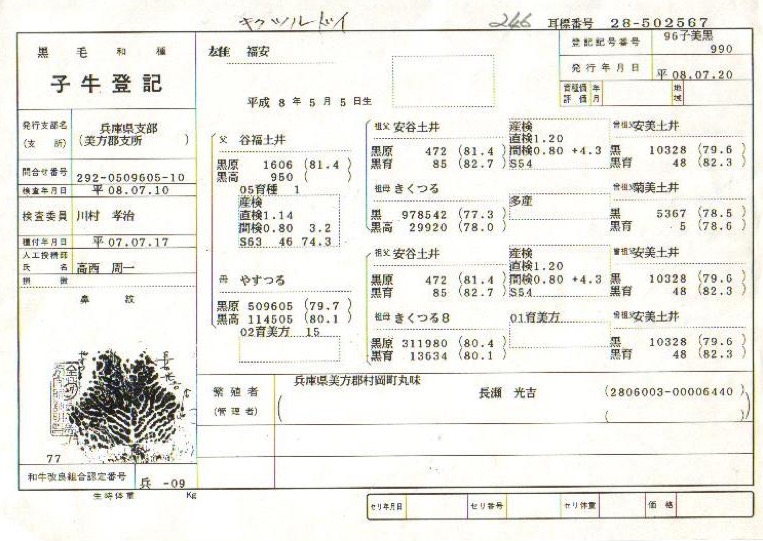 キクツルドイ 246 耳標番号 28-502567
黒毛和種
子牛登記
雄 福安
平成 8年 5月 5日生
登記記号番号 96子美黒 990
発行年月日 平 08.07.20
育種価評価 年月 地域
発行支部名(支所) 兵庫県支部 (美方郡支所)
問合せ番号 292-0509605-10
検査年月日 平 08.07.10
検査委員 川村 孝治
種付年月日 平 07.07.17
人工授精師氏名 高西 周一
損徴
鼻紋
77
和牛改良組合認定番号 兵 -09
生時体重 Kg
父 谷福土井
黒原 1606 (81.4)
黒高 950 ( )
05育種 1
産検
直検1.14
間検0.80 3.2
S63 46 74.3
母 やすつる
黒原 509605 (79.7)
黒高 114505 (80.1)
02育美方 15
祖父 安谷土井
黒原 472 (81.4)
黒育 85 (82.7)
産検
直検1.20
間検0.80 +4.3
S54
祖母 きくつる
黒 978542 (77.3)
黒高 29920 (78.0)
多産
祖父 安谷土井
黒原 472 (81.4)
黒育 85 (82.7)
産検
直検1.20
間検0.80 +4.3
S54
祖母 きくつる8
黒原 311980 (80.4)
黒育 13634 (80.1)
01育美方
曾祖父 安美土井
黒原 10328 (79.6)
黒育 48 (82.3)
曾祖父 菊美土井
黒 5367 (78.5)
黒育 5 (78.6)
曾祖父 安美土井
黒 10328 (79.6)
黒育 48 (82.3)
曾祖父 安美土井
黒 10328 (79.6)
黒育 48 (82.3)
繁殖者 兵庫県美方郡村岡町丸味
長瀬 光吉 (2806003-00006440)
(管理者)
セリ年月日 セリ番号 セリ体重 価格